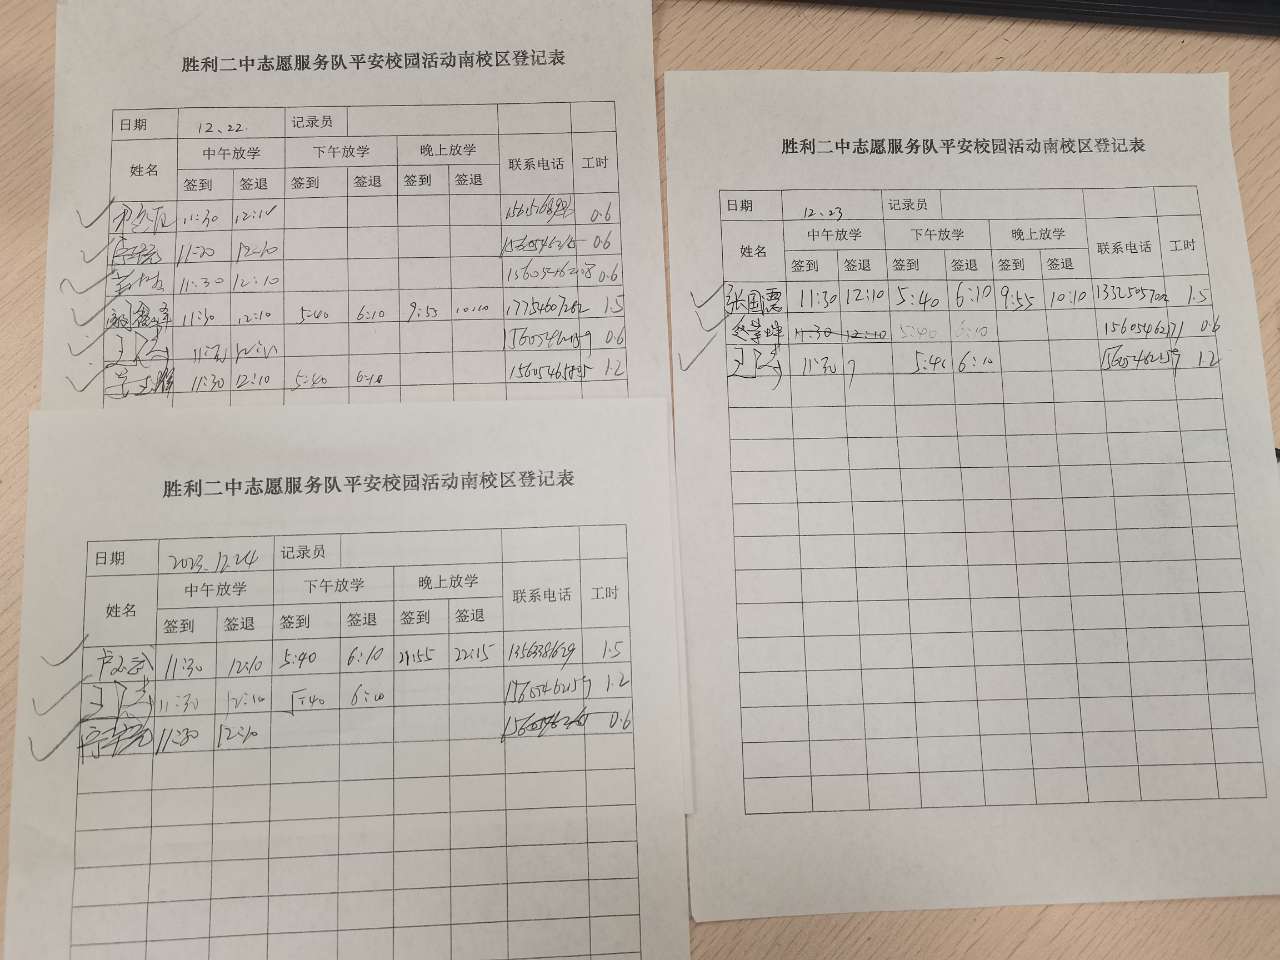 胜利二中志愿服务队平安校园活动南校区登记表
日期 12、22. 记录员
姓名 中午放学 下午放学 晚上放学 联系电话 工时
签到 签退 签到 签退 签到 签退
11:30 12:10 0.6
11:30 12:10 0.6
11:30 12:10 0.6
11:30 12:10 5:40 6:10 9:55 10:10 1.5
11:30 0.6
11:30 12:10 5:40 6:10 1.2
胜利二中志愿服务队平安校园活动南校区登记表
日期 2023.12.24 记录员
姓名 中午放学 下午放学 晚上放学 联系电话 工时
签到 签退 签到 签退 签到 签退
11:30 12:10 5:40 6:10 21:55 22:15 1.5
11:30 12:10 5:40 6:10 15605462159 1.2
11:30 12:10 0.6
胜利二中志愿服务队平安校园活动南校区登记表
日期 12、23 记录员
姓名 中午放学 下午放学 晚上放学 联系电话 工时
签到 签退 签到 签退 签到 签退
张国 11:30 12:10 5:40 6:10 9:55 10:10 1.5
11:30 12:10 5:40 6:10 15605462171 0.6
11:30 5:40 6:10 15605462159 1.2